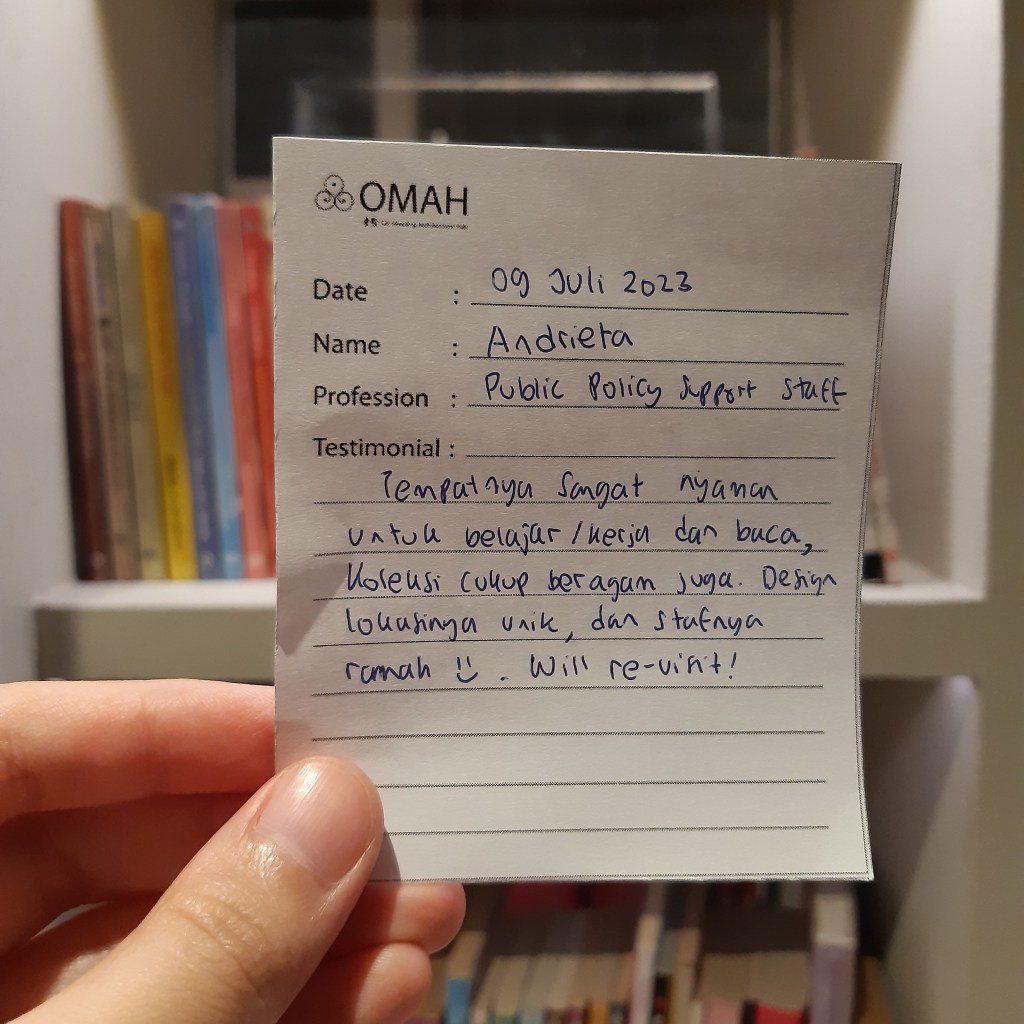 OMAH
Date : 09 Juli 2023
Name : Andrieta
Profession : Public Policy Support Staff
Testimonial :
Tempatnya sangat nyaman
untuk belajar/kerja dan baca,
koleksi cukup beragam juga. Design
lokasinya unik, dan stafnya
ramah :) . Will re-visit!